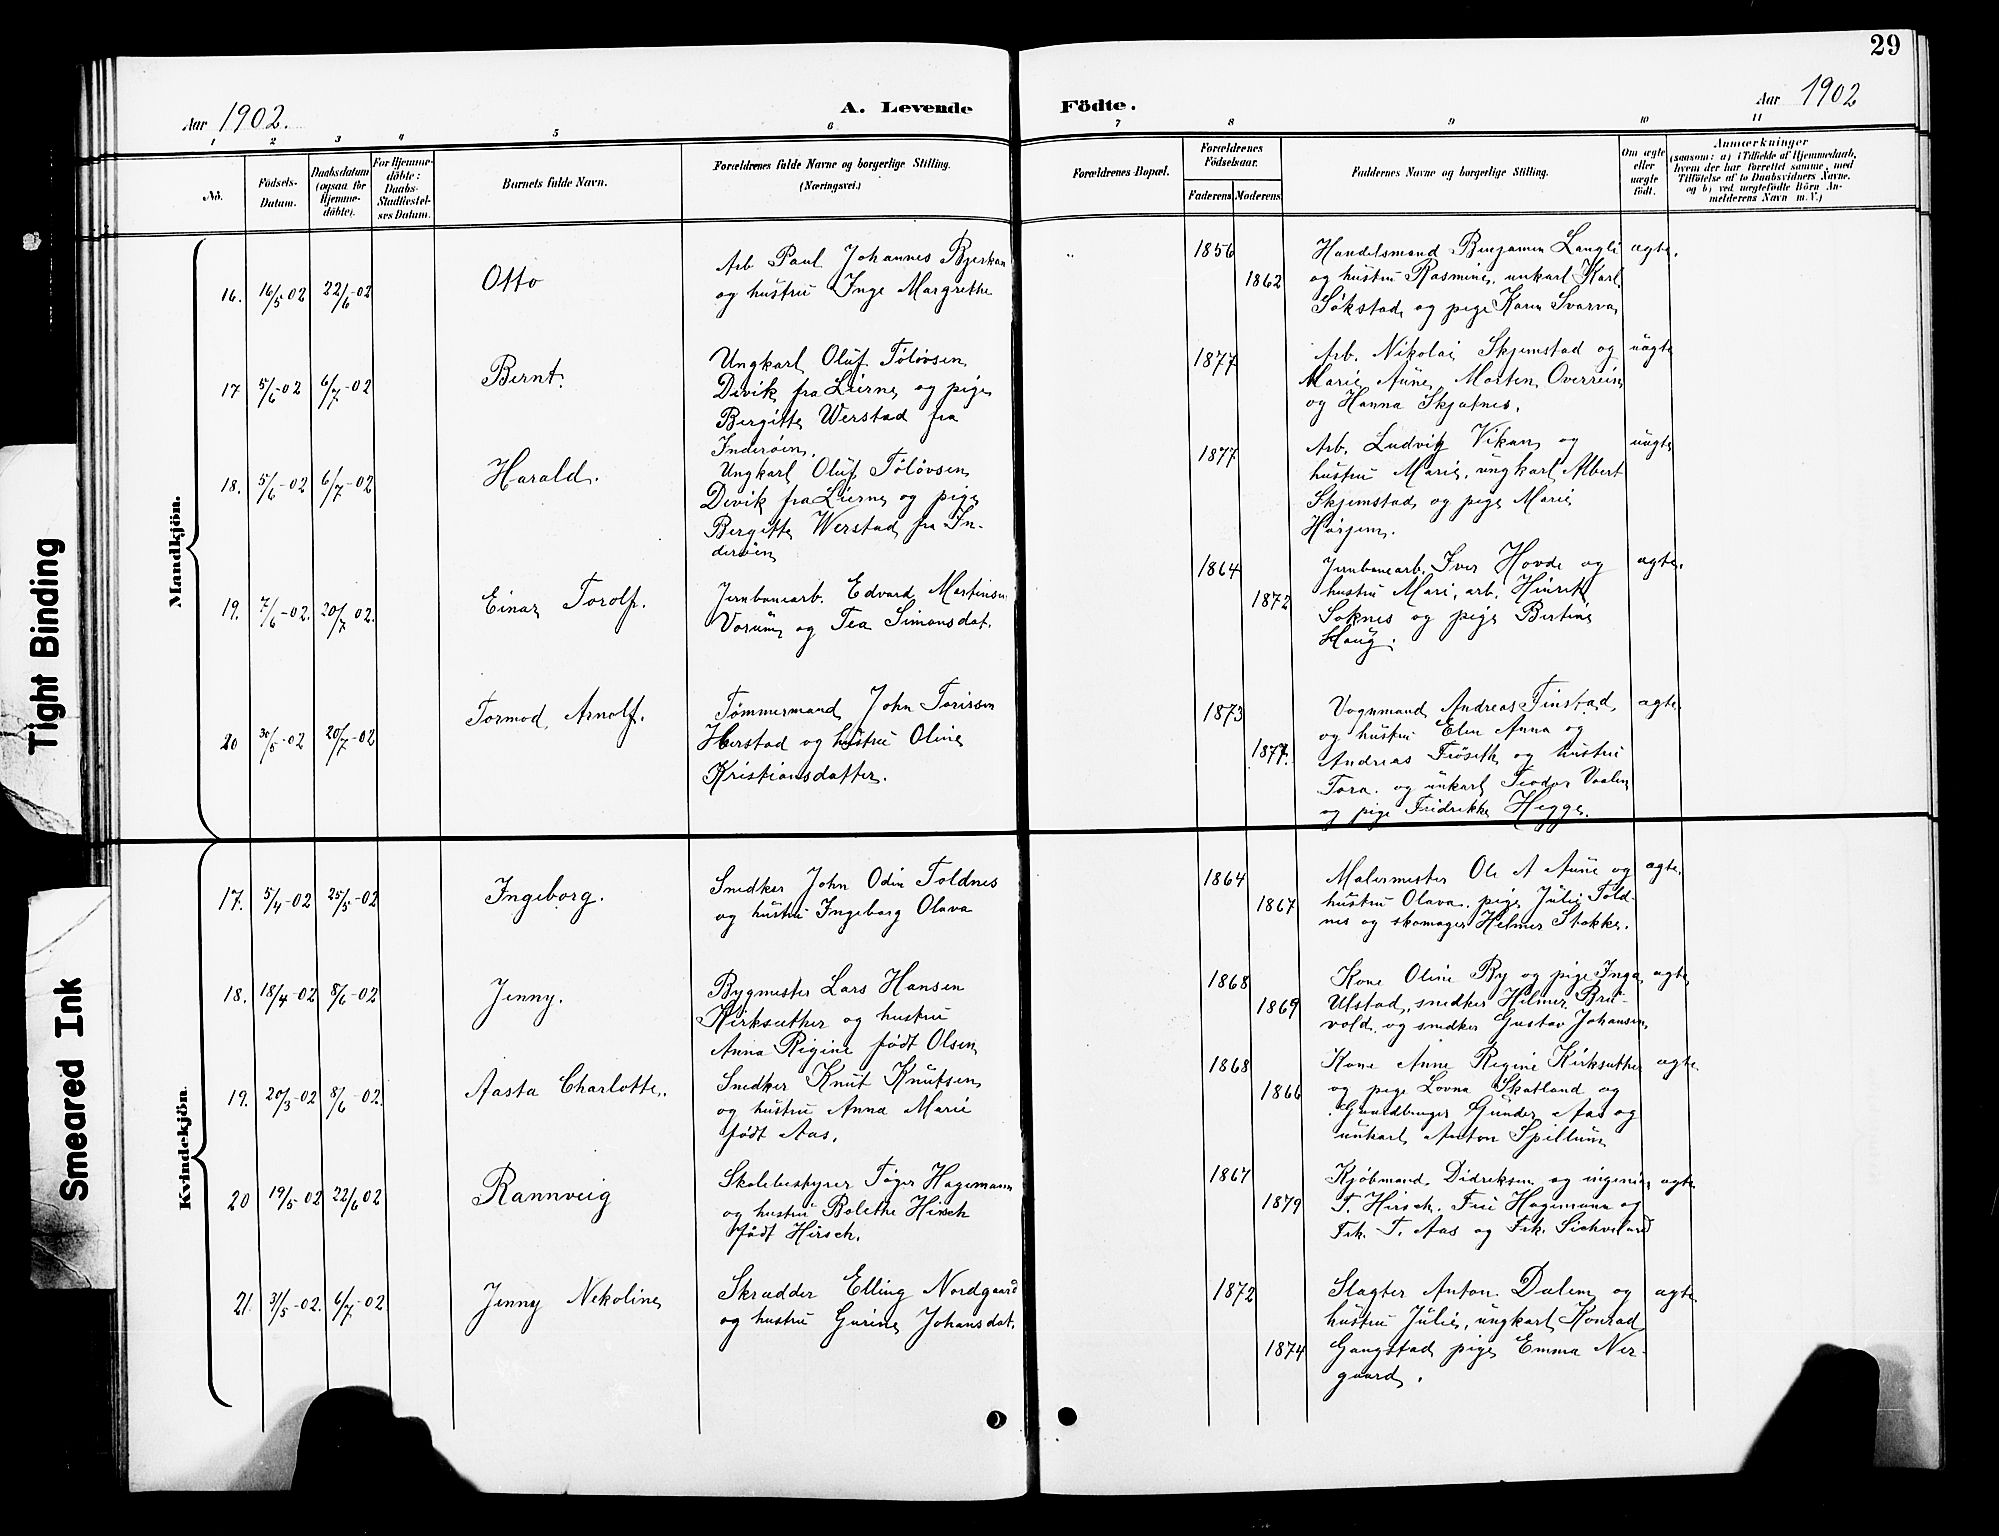 29
Aar 1902.
A. Levende Födte.
Aar 1902
1 2 3 4 5 6 7 8 9 10 11
Nö.
Födsels-
Datum.
Daabsdatum
(ogsaa for
Hjemme-
döbte).
For Hjemme-
döbte:
Daabs-
Stadfæstel-
ses Datum.
Barnets fulde Navn.
Forældrenes fulde Navne og borgerlige Stilling.
(Næringsvei.)
Forældrenes Bopæl.
Forældrenes
Födselsaar.
Faderens Moderens
Faddernes Navne og borgerlige Stilling.
Om ægte
eller
uægte
födt.
Anmærkninger
(saasom: a) i Tilfælde af Hjemmedaab,
hvem der har forrettet samme, med
Tilföielse af to Daabsvidners Navne,
og b) ved uægtefödte Börn An-
melderens Navn m. V.)
Mandkjön.
16. 16/5-02 22/6-02
Otto
Arb Paul Johannes Bjerkan
og hustru Inge Margrethe
1856
1862
Handelsmand Benjamin Langli
og hustru Rasmine, unkarl Karl
Søkstad, og pige Karen Svarva
ægte.
17 5/6-02 6/7-02
Bernt.
Ungkarl Oluf Tølovsen
Devik fra Lierne og pige
Bergitte Werstad fra
Inderøen.
1877
Arb. Nikolai Skjemstad og
Marie Aune, Morten Overrein
og Hanna Skjatnes.
uægte
18. 5/6-02 6/7-02
Harald.
Ungkarl Oluf Tølovsen
Devik fra Lierne og pige
Bergitte Werstad fra In-
derøen
1877
Arb. Ludvig Vikan og
hustru Marie, ungkarl Albert
Skjemstad og pige Marie
Hørjem.
uægte
19. 7/6-02. 20/7 02.
Einar Torolf.
Jernbanearb. Edvard Martinsen
Vorum og Tea Simonsdat.
1864
1872
Jernbanearb. Iver Hovde og
hustru Mari, arb. Hinrik
Soknes og pige Bertine
Haug.
ægte.
20 30/5-02 20/7-02
Tormod Arnolf.
Tømmermand John Torissen
Herstad og hustru Oline
Kristiansdatter.
1873
1877.
Vognmand Andreas Finstad
og hustru Elen Anna og
Andreas Frøseth og hustru
Tora. og unkarl Teodor Vaalen
og pige Fridrikke Hegge.
ægte
Kvindekjön.
17. 5/4-02 25/5-02
Ingeborg.
Snedker John Odin Toldnes
og hustru Ingeborg Olava
1864
1867
Malermester Ole A Aune og
hustru Olava, pige Julie Told-
nes og skomager Helmer Stokke.
ægte.
18. 18/4-02 8/6-02
Jenny.
Bygmester Lars Hansen
Kirksæther og hustru
Anna Regine født Olsen
1868
1869
Kone Oline By og pige Inga
Ulstad, snedker Hilmer Bru-
vold. og snedker Gustav Johansen
ægte
19. 20/3-02 8/6-02.
Aasta Charlotte.
Snedker Knut Knutsen
og hustru Anna Marie
født Aas.
1868
1866
Kone Anne Regine Kirksæther
og pige Lovna Skatland og
Gaardbruger Gunder Aas og
unkarl Anton Spillum
ægte.
20 19/5-02 22/6 02
Rannveig
Skolebestyrer Tøger Hagemann
og hustru Bolette Hirsch
født Hirsch.
1867
1879
Kjøbmand Didriksen og ingeniør
T. Hirsch. Frü Hagemann og
Frk. T. Aas og Frk.
ægte
21. 31/5-02. 6/7-02
Jenny Nekoline
Skrædder Elling Nordgaard
og hustru Gurine Johansdat.
1872
1874
Slagter Anton Dalem og
hustru Julie, ungkarl Konrad
Gangstad pige Emma Ner-
gaard.
ægte
Tight Binding
Smeared Ink